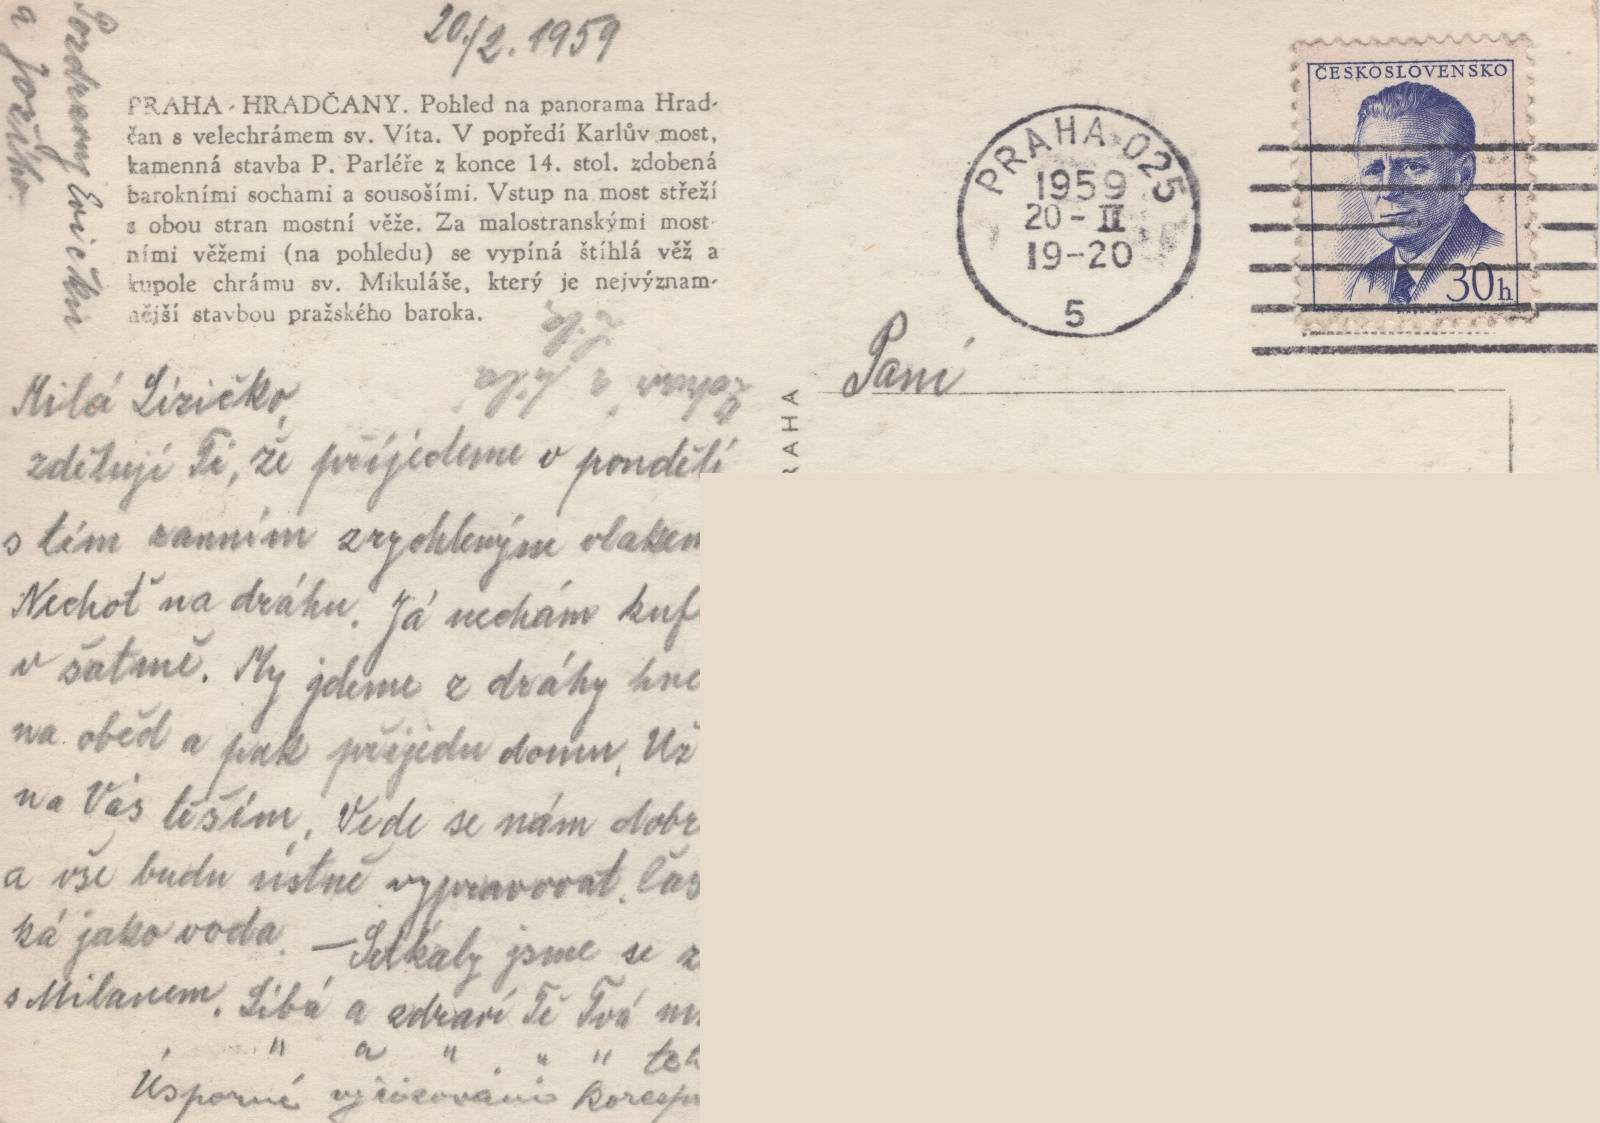 20./2. 1959
Pozdravuj Evičku
a Jožího.
PRAHA - HRADČANY. Pohled na panorama Hrad-
čan s velechrámem sv. Víta. V popředí Karlův most,
kamenná stavba P. Parléře z konce 14. stol. zdobená
barokními sochami a sousošími. Vstup na most střeží
s obou stran mostní věže. Za malostranskými most-
ními věžemi (na pohledu) se vypíná štíhlá věž a
kupole chrámu sv. Mikuláše, který je nejvýznam-
nější stavbou pražského baroka.
Milá Lízičko,
zděluji Ti, že příjedeme v pondělí
s tím ranním zrychleným vlakem
Nechoť na dráhu. Já nechám kuf
v šatně. My jdeme z dráhy hne
na oběd a pak přijedu domu. Už
na Vás těším. Vede se nám dobř
a vše budu ústně vypravovat. Čas
ká jako voda. — Setkaly jsme se z
s Milanem. Líbá a zdraví Tě Tvá m
" a " " " tet
Úsporné vyřizování koresp
ČESKOSLOVENSKO
30h
PRAHA 025
1959
20-II
19-20
5
Paní
RAHA